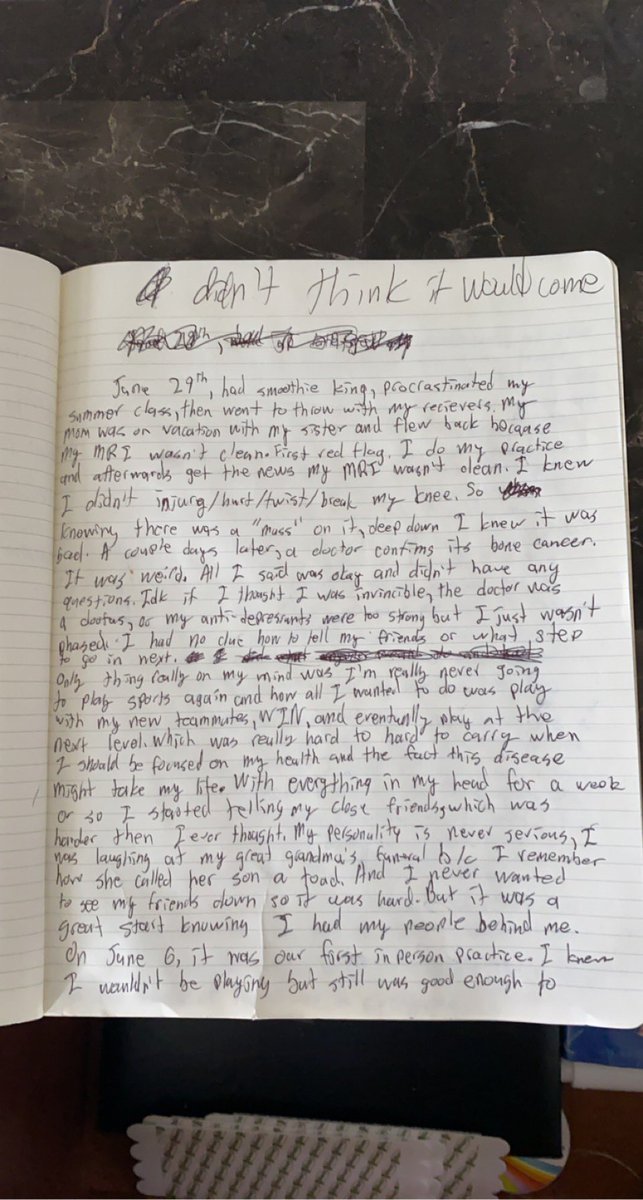 didn't think it would come
June 29th, had smoothie king, procrastinated my
summer class, then went to throw with my recievers. My
mom was on vacation with my sister and flew back because
my MRI wasn't clean. First red flag. I do my practice
and afterwards get the news my MRI wasn't clean. I knew
I didn't injury/hurt/twist/break my knee. So
knowing there was a "mass" on it, deep down I knew it was
bad. A couple days later, a doctor confirms its bone cancer.
It was weird. All I said was okay and didn't have any
questions. Idk if I thought I was invincible, the doctor was
a doofus, or my anti-depressants were too strong but I just wasn't
phased. I had no clue how to tell my friends or what step
to go in next.
Only thing really on my mind was I'm really never going
to play sports again and how all I wanted to do was play
with my new teammates, WIN, and eventually play at the
next level. Which was really hard to hard to carry when
I should be focused on my health and the fact this disease
might take my life. With everything in my head for a week
or so I started telling my close friends, which was
harder then I ever thought. My personality is never serious, I
was laughing at my great grandma's funeral b/c I remember
how she called her son a toad. And I never wanted
to see my friends down so it was hard. But it was a
great start knowing I had my people behind me.
On June 6, it was our first in person practice. I knew
I wouldn't be playing but still was good enough to